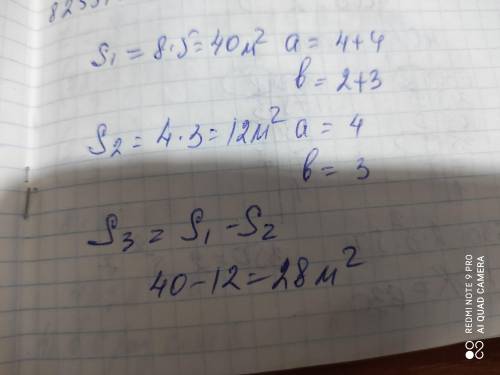 S₁ = 8·5 = 40м² a = 4+4
b = 2+3
S₂ = 4·3 = 12м² a = 4
b = 3
S₃ = S₁ - S₂
40-12=28м²
REDMI NOTE 9 PRO
AI QUAD CAMERA